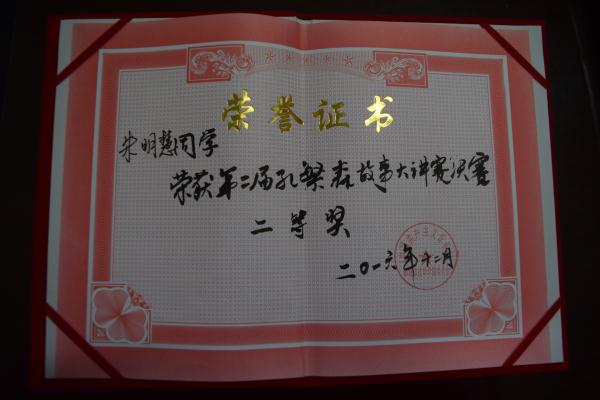 荣誉证书
朱明慧同学
荣获第二届孔繁森故事大讲赛决赛
二等奖
二〇一六年十二月